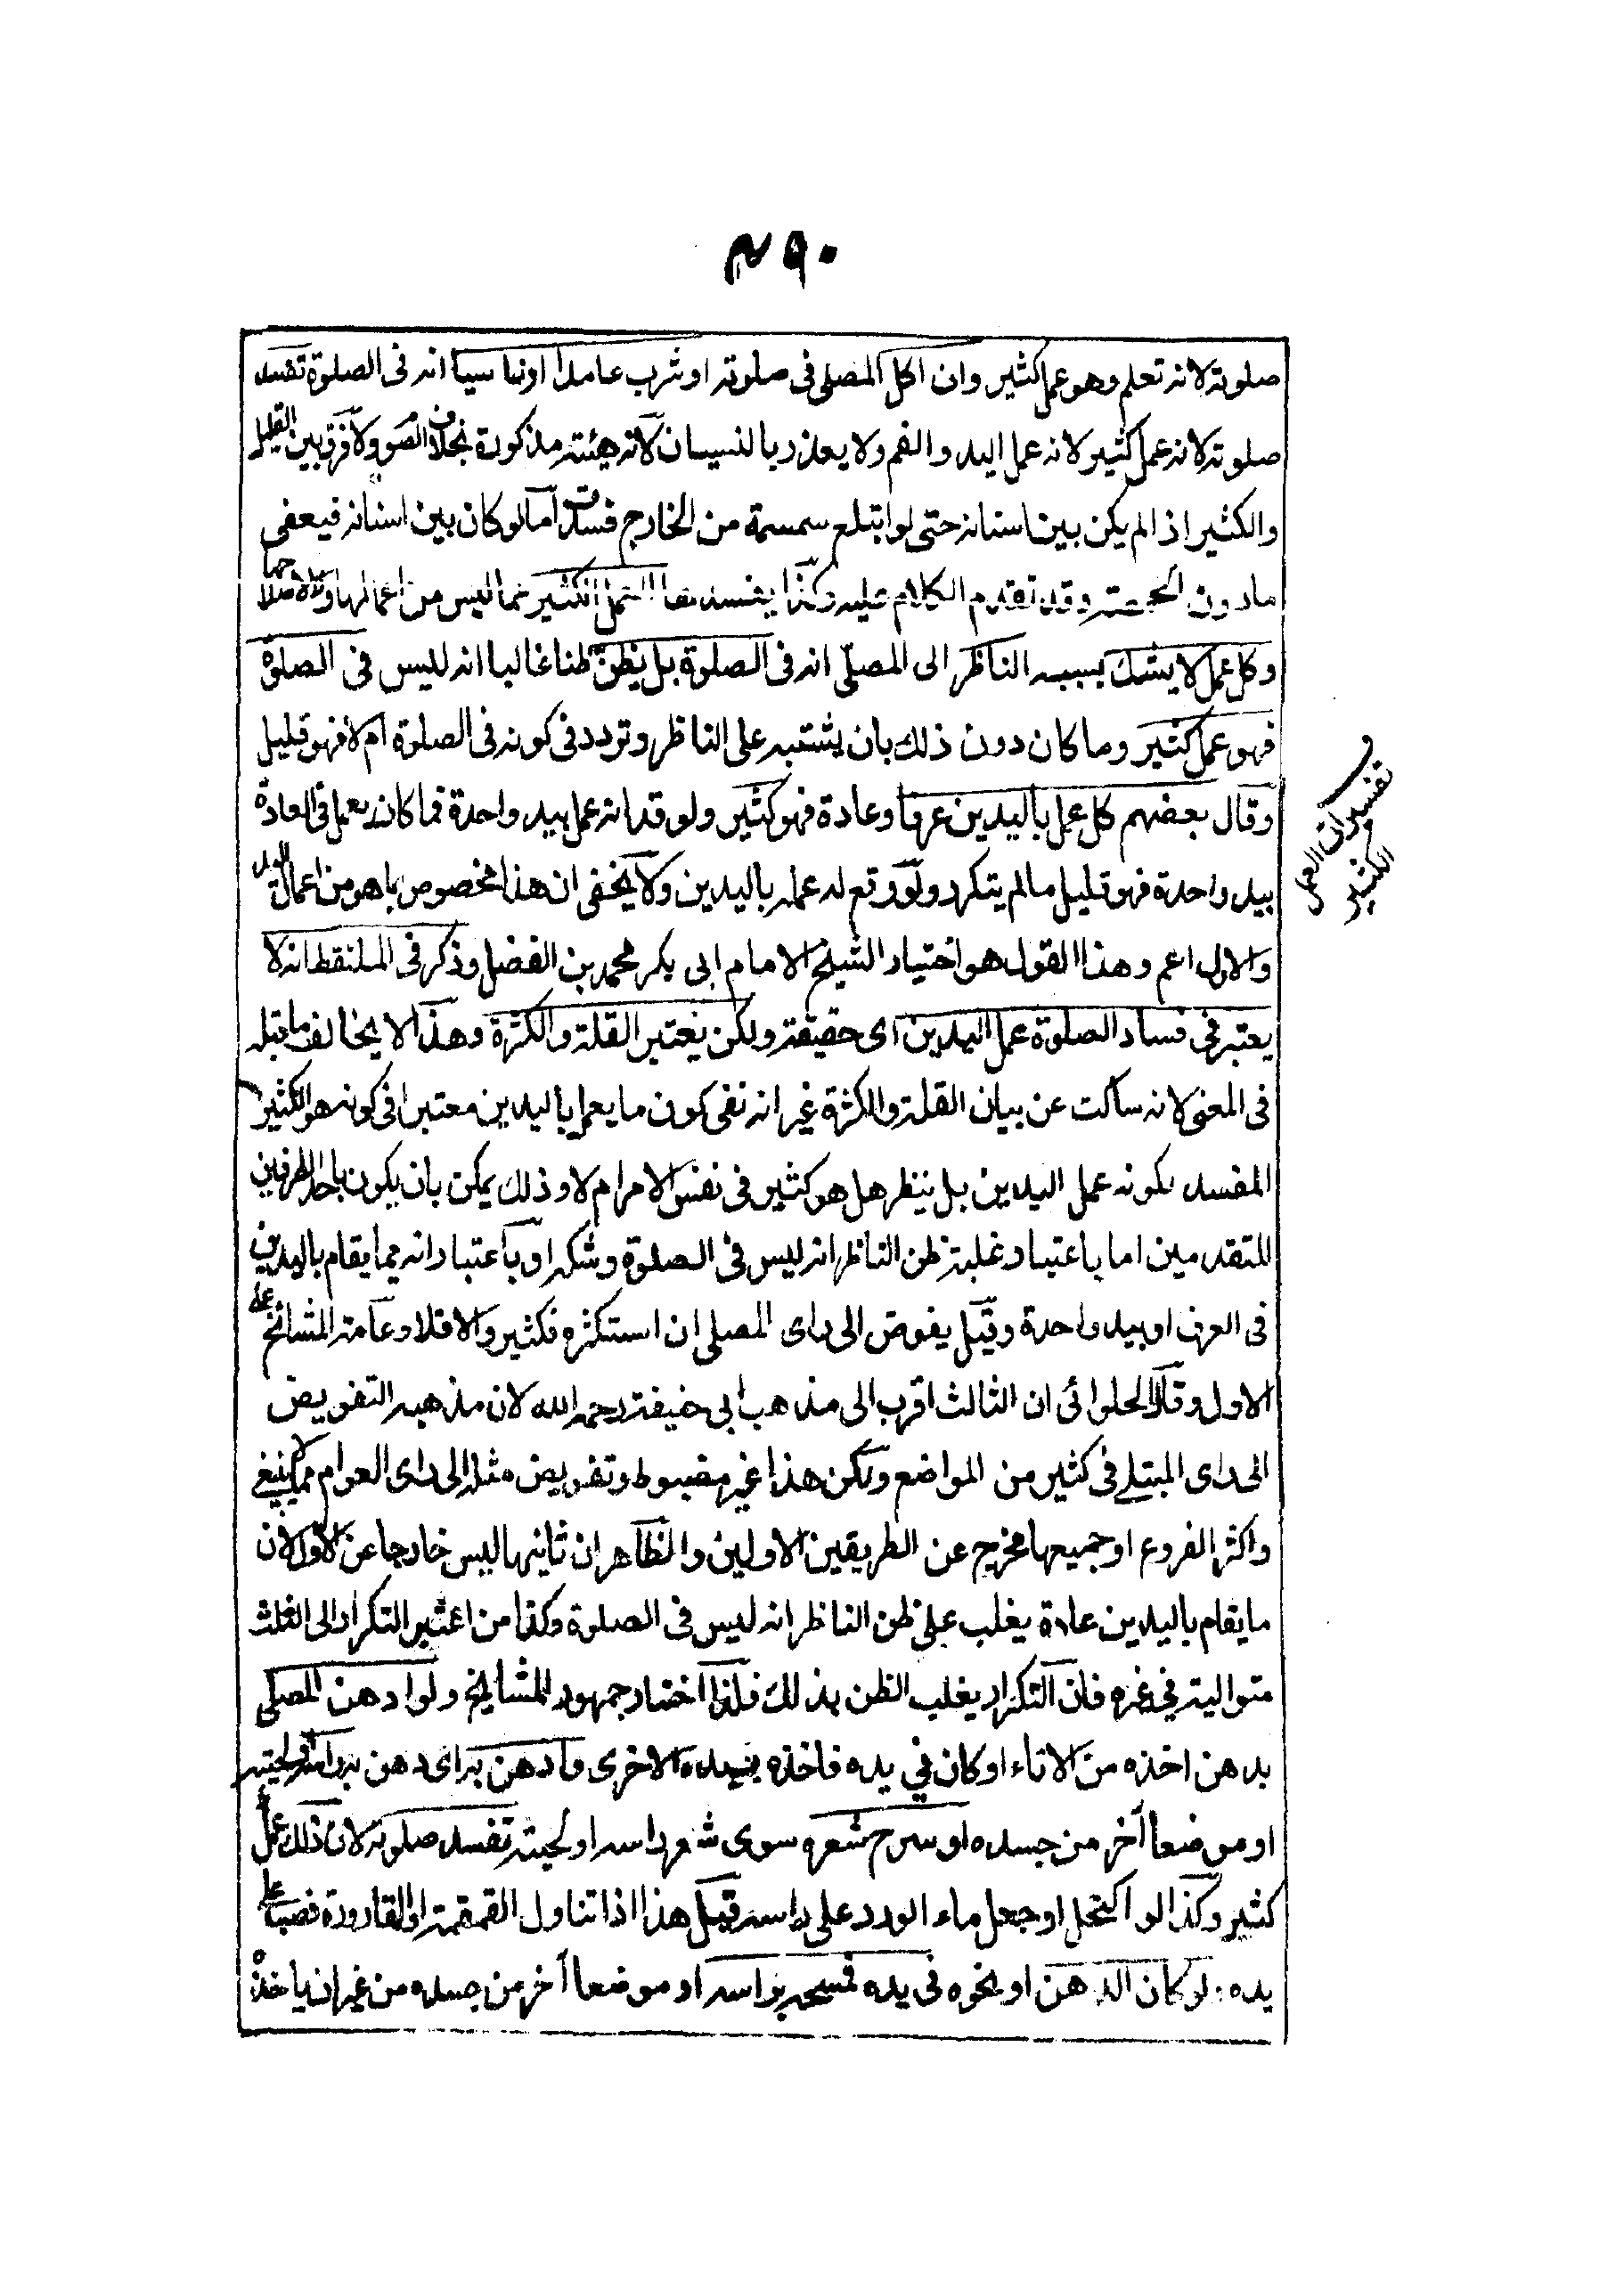 ٤٩٠
صلوته لانه تعلم وهو عمل كثير وان اكل المصلى فى صلوته او شرب عامدا او ناسيا انه فى الصلوة تفسد
صلوته لانه عمل كثير لانه عمل اليد والفم ولا يعذر بالنسيان لانه هيئته مذكورة بخلاف الصوم ولا فرق بين القليل
والكثير اذا لم يكن بين اسنانه حتى لو ابتلع سمسمة من الخارج فسدت اما لو كان بين اسنانه فيعفى
مادون الحمصة وقد تقدم الكلام عليه وكذا يفسدها العمل الكثير مما ليس من اعمالها ولا لاصلاحها
وكل عمل لا يشك بسببه الناظر الى المصلّى انه فى الصلوة بل يظنّ ظنا غالبا انه ليس فى الصلوة
فهو عمل كثير وما كان دون ذلك بان يشتبه على الناظر وتردد فى كونه فى الصلوة ام لا فهو قليل
وقال بعضهم كل عمل باليدين عرفا وعادة فهو كثير ولو قدانه عمل بيد واحدة فما كان يعمل فى العادة
بيد واحدة فهو قليل مالم يتكرر ولو وقع له عمله باليدين ولا يخفى ان هذا مخصوص بما هو من اعمال اليد
والاول اعم وهذا القول هو اختيار الشيخ الامام ابى بكر محمد بن الفضل وذكر فى الملتقط انه لا
يعتبر فى فساد الصلوة عمل اليدين اى حقيقة ولكن يعتبر القلة والكثرة وهذا لا يخالف ما قبله
فى المعنى لانه ساكت عن بيان القلة والكثرة غير انه نفى كون ما يعمل باليدين معتبرا فى كونه هو الكثير
المفسد لكونه عمل اليدين بل ينظر هل هو كثير فى نفس الامر ام لا وذلك يمكن بان يكون باحد الطرفين
المتقدمين اما باعتبار غلبة ظن الناظر انه ليس فى الصلوة وشكه او باعتبار انه مما يقام باليدين
فى العرف او بيد واحدة وقيل يفوض الى راى المصلى ان استكثره فكثير والا فلا وعامة المشائخ على
الاول وقال الحلوائى ان الثالث اقرب الى مذهب ابى حنيفة رحمه الله لان مذهبه التفويض
الى راى المبتلے فى كثير من المواضع ولكن هذا غير مضبوط وتفويض مثله الى راى العوام مما لا ينبغى
واكثر الفروع او جميعها مخرج عن الطريقين الاولين والظاهر ان ثانيهما ليس خارجا عن الاول لان
ما يقام باليدين عادة يغلب على ظن الناظر انه ليس فى الصلوة وكذا من اعتبر التكرار الى الثلث
متوالية فى غيره فان التكرار يغلب الظن بذلك فلذا اختار جمهور المشايخ ولو ادهن المصلى
بدهن اخذه من الاناء او كان فى يده فاخذه بيده الاخرى وادهن به اى دهن به راسه او لحيته
او موضعا آخر من جسده او سرح شعره سوى شعر راسه او لحيته تفسد صلوته لان ذلك عمل
كثير وكذا لو اكتحل او جعل ماء الورد على راسه قيل هذا اذا تناول القمقمة او القارورة فصب على
يده ولو كان الدهن او نحوه فى يده فمسحه براسه او موضعا آخر من جسده من غير ان ياخذه
ف
تفسيران العمل
الكثير